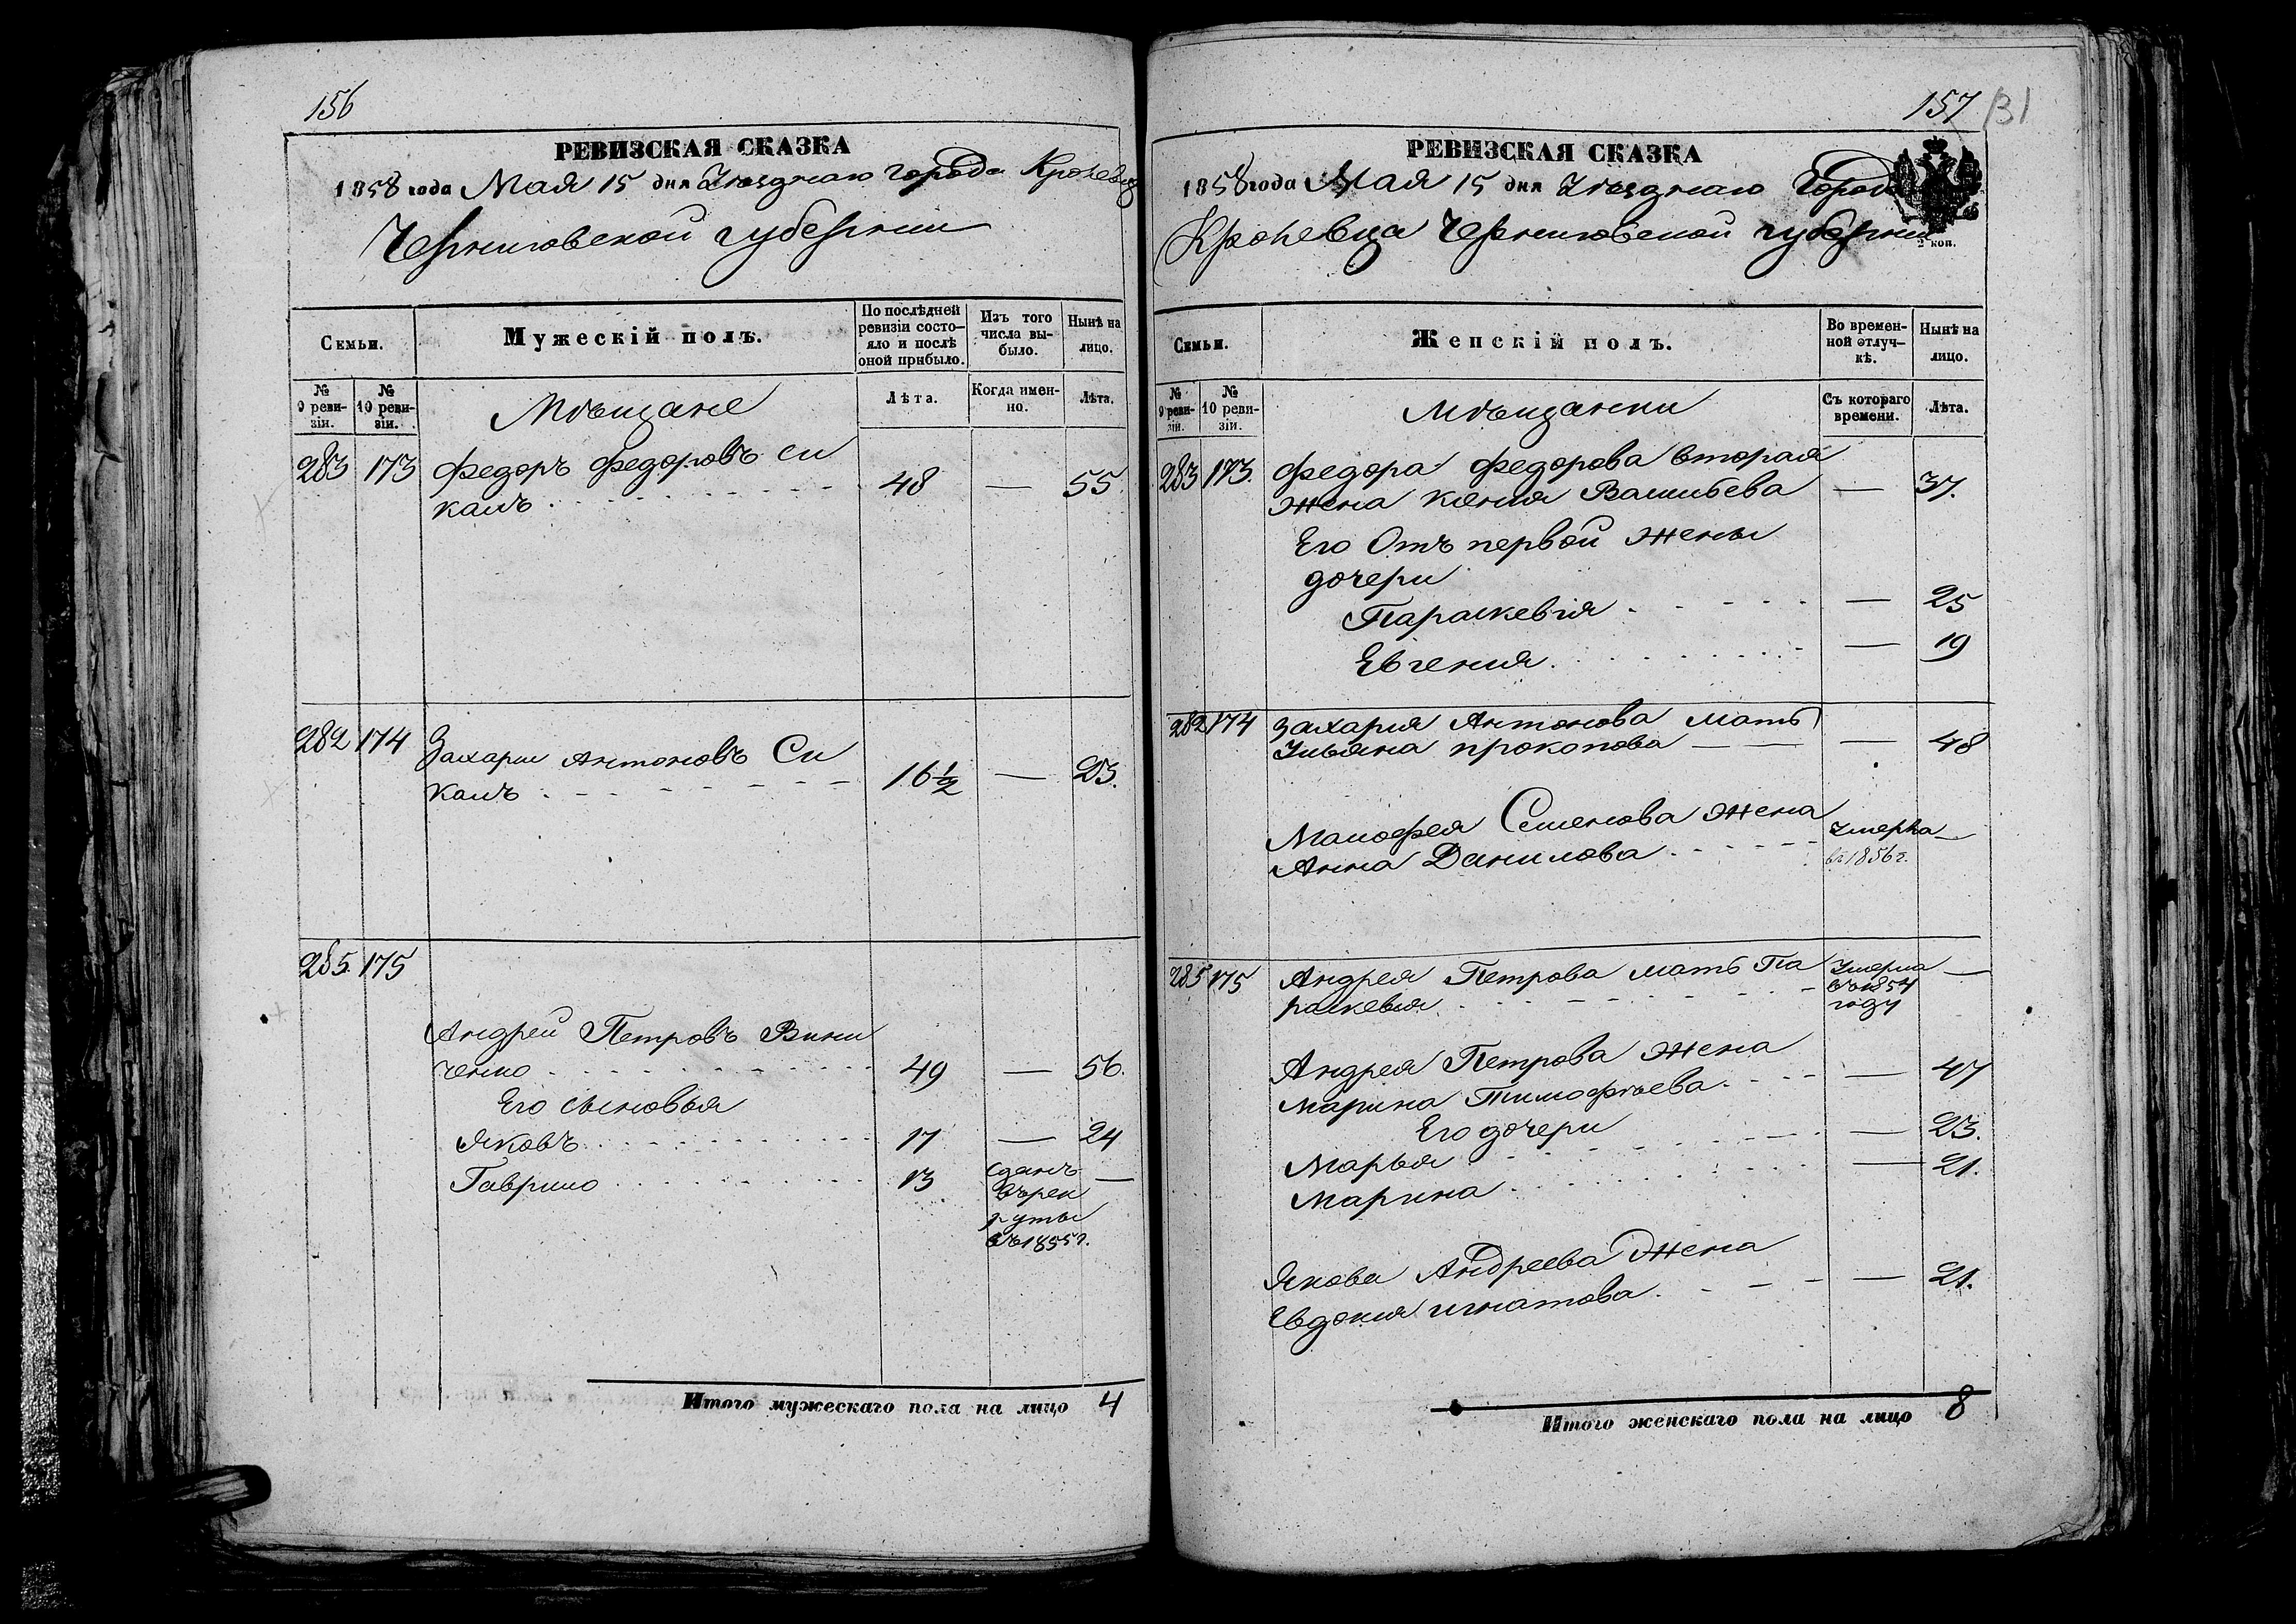 156
РЕВИЗСКАЯ СКАЗКА
1858 года Мая 15 дня Уѣзднаго города Кролевца
Черниговской губернии
Семьи.
Мужескій полъ.
По послѣдней ревизіи состо-
яло и послѣ оной прибыло.
Изъ того числа вы-
было.
Нынѣ на лицо.
№ 9 реви-
зіи.
№ 10 реви-
зіи.
Мѣщане
Лѣта.
Когда имен-
но.
Лѣта.
283 173 Федоръ Федоровъ Си
калъ 48 — 55.
282 174 Захарии Антоновъ Си
калъ 16 1/2 — 23.
285. 175
Андреи Петровъ Вини
ченко 49 — 56.
Его сыновья
Яковъ 17 — 24
Гаврило 13 сданъ —
въ рек
руты
въ 1855 г.
Итого мужескаго пола на лицо 4
157 131
РЕВИЗСКАЯ СКАЗКА
1858 года Мая 15 дня Уѣзднаго Города
Кролевца Черниговской губернии
2 коп.
Семьи.
Женскій полъ.
Во времен-
ной отлуч-
кѣ.
Нынѣ на лицо.
№ 9 реви-
зіи.
№ 10 реви-
зіи.
Мѣщанки
Съ котораго времени.
Лѣта.
283 173. Федора Федорова вторая
жена Ксения Васильева — 37.
Его Отъ первой жены
дочери
Параскевія — 25
Евгения — 19
282 174 Захария Антонова мать
Ульяна Прокопова — 48
Семенова жена Умерла —
Анна Данилова въ 1856 г.
285 175 Андрея Петрова мать Па Умерла —
раскевия въ 1854
году
Андрея Петрова жена
Марина Тимофѣева — 47
Его дочери
Марья — 23.
Марина — 21.
Якова Андреева Жена
Евдокия Игнатова — 21.
Итого женскаго пола на лицо 8